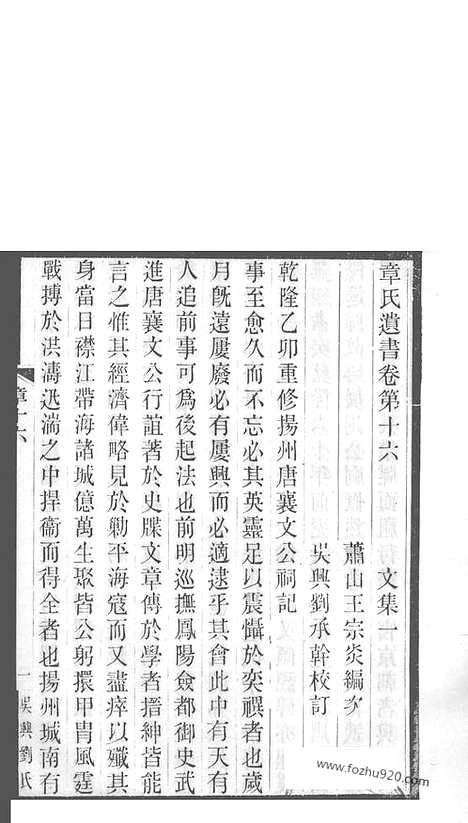 章氏遺書卷第十六 文集一
蕭山王宗炎編次
吳興劉承幹校訂
乾隆乙卯重修揚州唐襄文公祠記
事至愈久而不忘必其英靈足以震懾於奕禩者也歲
月旣遠屢廢必有屢興而必適逮乎其會此中有天有
人追前事可爲後起法也前明巡撫鳳陽僉都御史武
進唐襄文公行誼著於史牒文章傳於學者搢紳皆能
言之惟其經濟偉略見於勦平海寇而又盡瘁以殲其
身當日襟江帶海諸城億萬生聚皆公躬擐甲冑風霆
戰搏於洪濤迅湍之中捍衞而得全者也揚州城南有
章十六
一
吳興劉氏
www.fozhu920.com